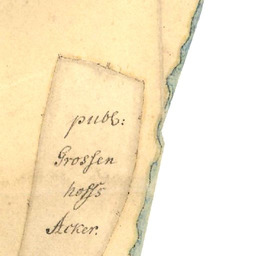 publ:
Grossen
hoffs
Acker.